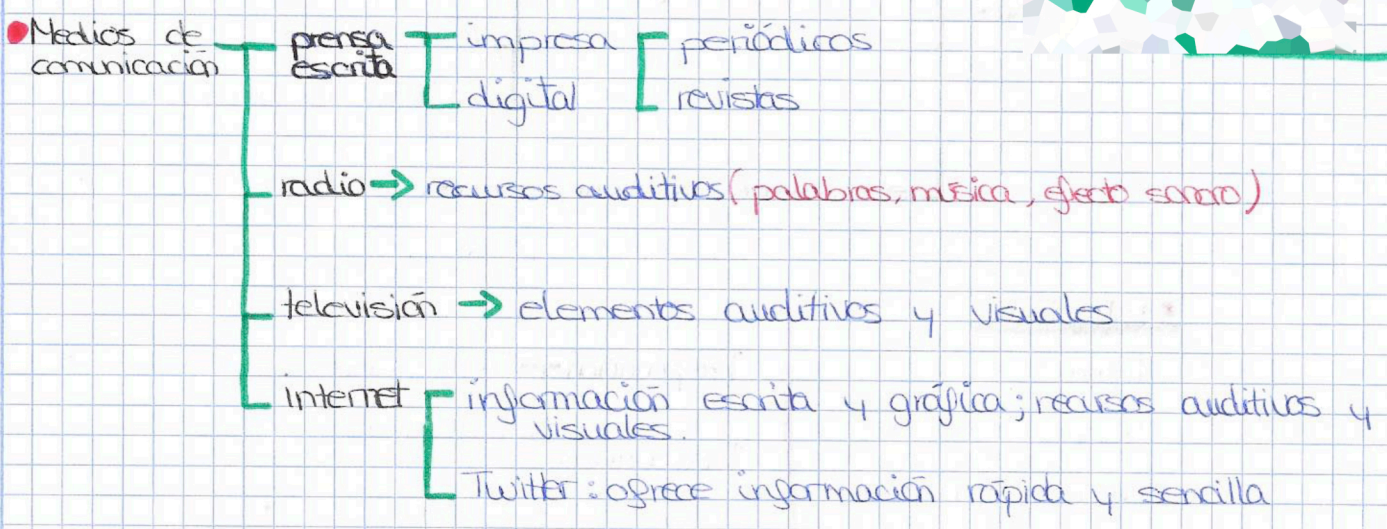 Medios de prensa impresa periódicos
comunicación escrita
digital revistas
radio → recursos auditivos (palabras, música, efecto sonoro)
televisión → elementos auditivos y visuales
internet información escrita y gráfica; recursos auditivos y
visuales.
Twitter: ofrece información rápida y sencilla